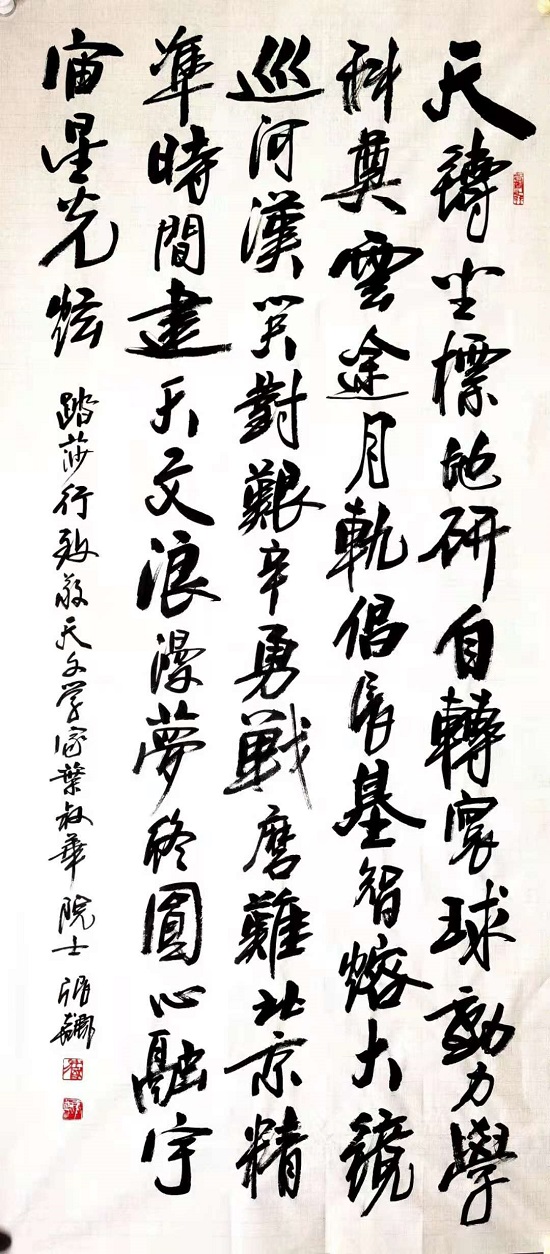 天鑄坐標地研自轉寰球動力學
科奠雲途月軌倡長基智熔大鏡
巡河漢笑對艱辛勇戰磨難北京精
準時間建天文浪漫夢終圓心融宇
宙星光炫
踏莎行致敬天文学家葉叔華院士